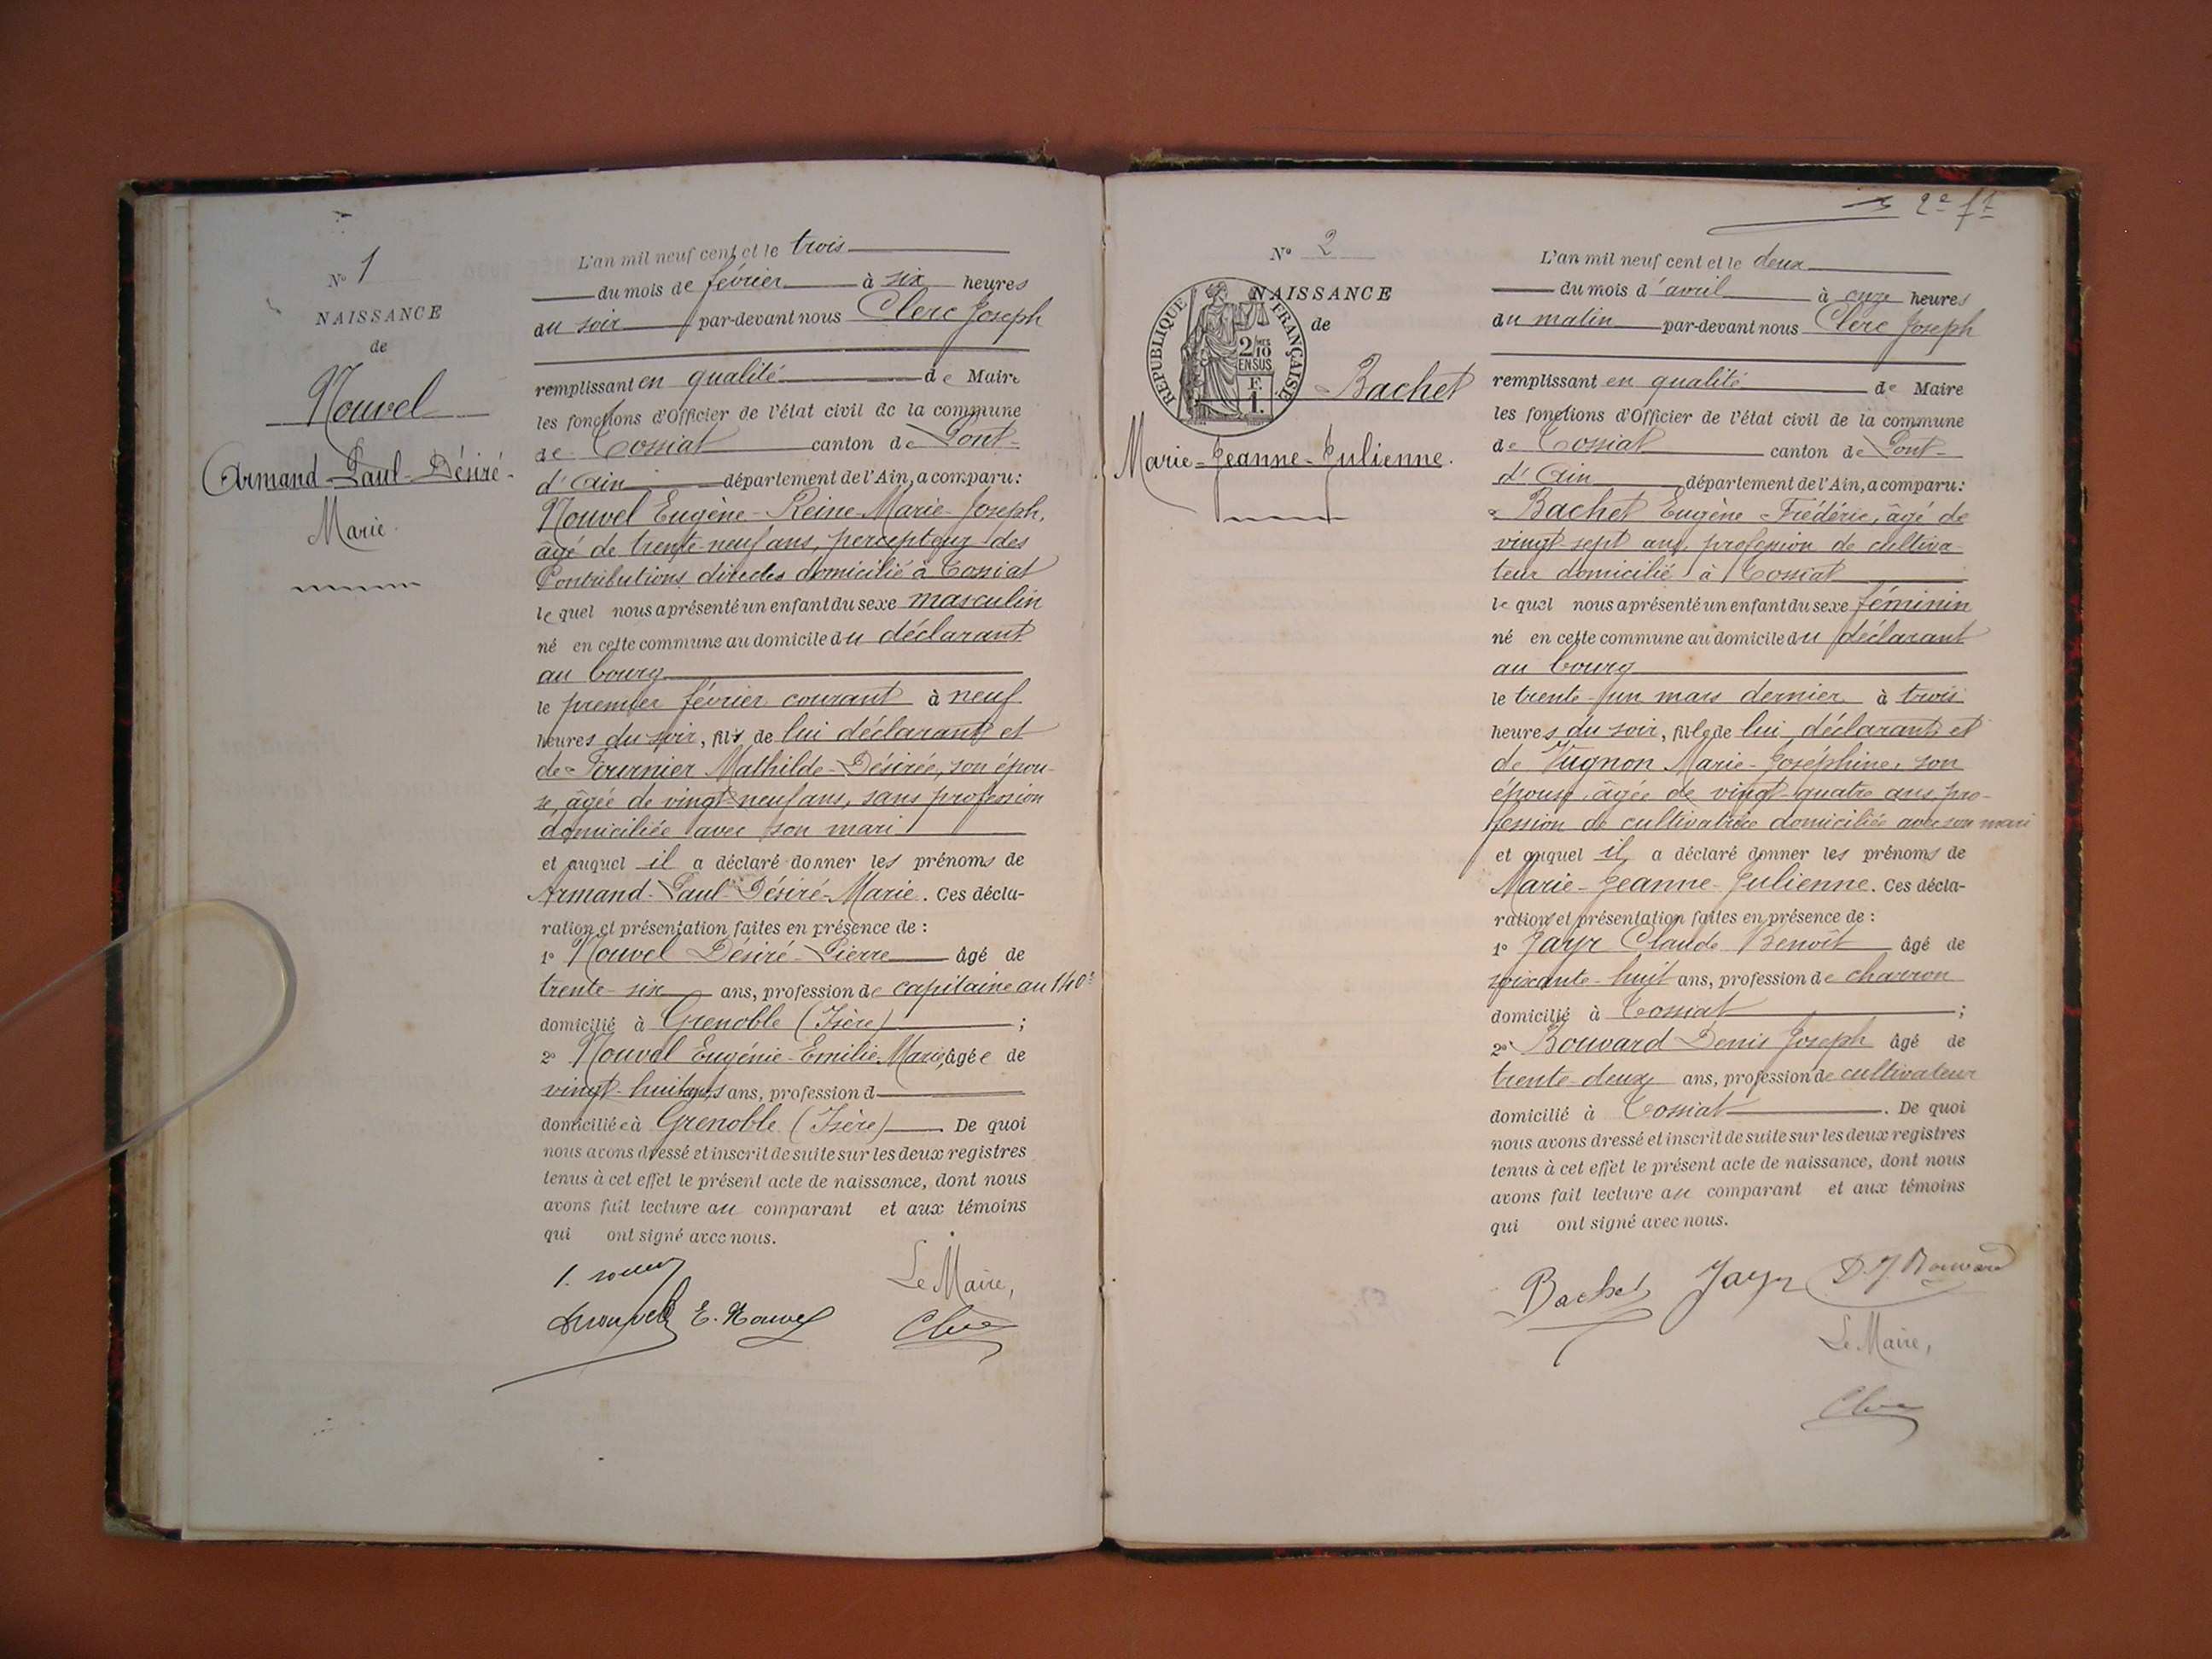 Nº 1
NAISSANCE
de
Nouvel
Armand-Paul-Désiré-
Marie.
L'an mil neuf cent et le trois
du mois de février à six heures
du soir par-devant nous Clerc Joseph
remplissant en qualité de Maire
les fonctions d'Officier de l'état civil de la commune
de Tossiat canton de Pont-
d'Ain département de l'Ain, a comparu:
Nouvel Eugène-Reine-Marie-Joseph,
âgé de trente-neuf ans, percepteur des
Contributions directes domicilié à Tossiat
lequel nous a présenté un enfant du sexe masculin
né en cette commune au domicile du déclarant
au bourg
le premier février courant à neuf
heures du soir, fils de lui déclarant et
de Fournier Mathilde-Désirée, son épou-
se, âgée de vingt-neuf ans, sans profession
domiciliée avec son mari
et auquel il a déclaré donner les prénoms de
Armand-Paul-Désiré-Marie. Ces décla-
ration et présentation faites en présence de :
1º Nouvel Désiré-Pierre âgé de
trente-six ans, profession de capitaine au 140e
domicilié à Grenoble (Isère) ;
2º Nouvel Eugénie-Emilie-Marie, âgée de
vingt-huit ans, profession d
domiciliée à Grenoble (Isère). De quoi
nous avons dressé et inscrit de suite sur les deux registres
tenus à cet effet le présent acte de naissance, dont nous
avons fait lecture au comparant et aux témoins
qui ont signé avec nous.
Le Maire,
E. Nouvel Clerc
2e ft
Nº 2
NAISSANCE
de
REPUBLIQUE FRANÇAISE
2/10
EN SUS
F.
1.
Bachet
Marie-Jeanne-Julienne.
L'an mil neuf cent et le deux
du mois d'avril à onze heures
du matin par-devant nous Clerc Joseph
remplissant en qualité de Maire
les fonctions d'Officier de l'état civil de la commune
de Tossiat canton de Pont-
d'Ain département de l'Ain, a comparu:
Bachet Eugène-Frédéric, âgé de
vingt-sept ans, profession de cultiva-
teur domicilié à Tossiat
lequel nous a présenté un enfant du sexe féminin
né en cette commune au domicile du déclarant
au bourg
le trente-un mars dernier à trois
heures du soir, fille de lui déclarant et
de Vugnon Marie-Joséphine, son
épouse, âgée de vingt-quatre ans, pro-
fession de cultivatrice domiciliée avec son mari
et auquel il a déclaré donner les prénoms de
Marie-Jeanne-Julienne. Ces décla-
ration et présentation faites en présence de :
1º Jayr Claude Benoît âgé de
soixante-huit ans, profession de charron
domicilié à Tossiat ;
2º Bouvard Denis Joseph âgé de
trente-deux ans, profession de cultivateur
domicilié à Tossiat. De quoi
nous avons dressé et inscrit de suite sur les deux registres
tenus à cet effet le présent acte de naissance, dont nous
avons fait lecture au comparant et aux témoins
qui ont signé avec nous.
Bachet Jayr D. J. Bouvard
Le Maire,
Clerc